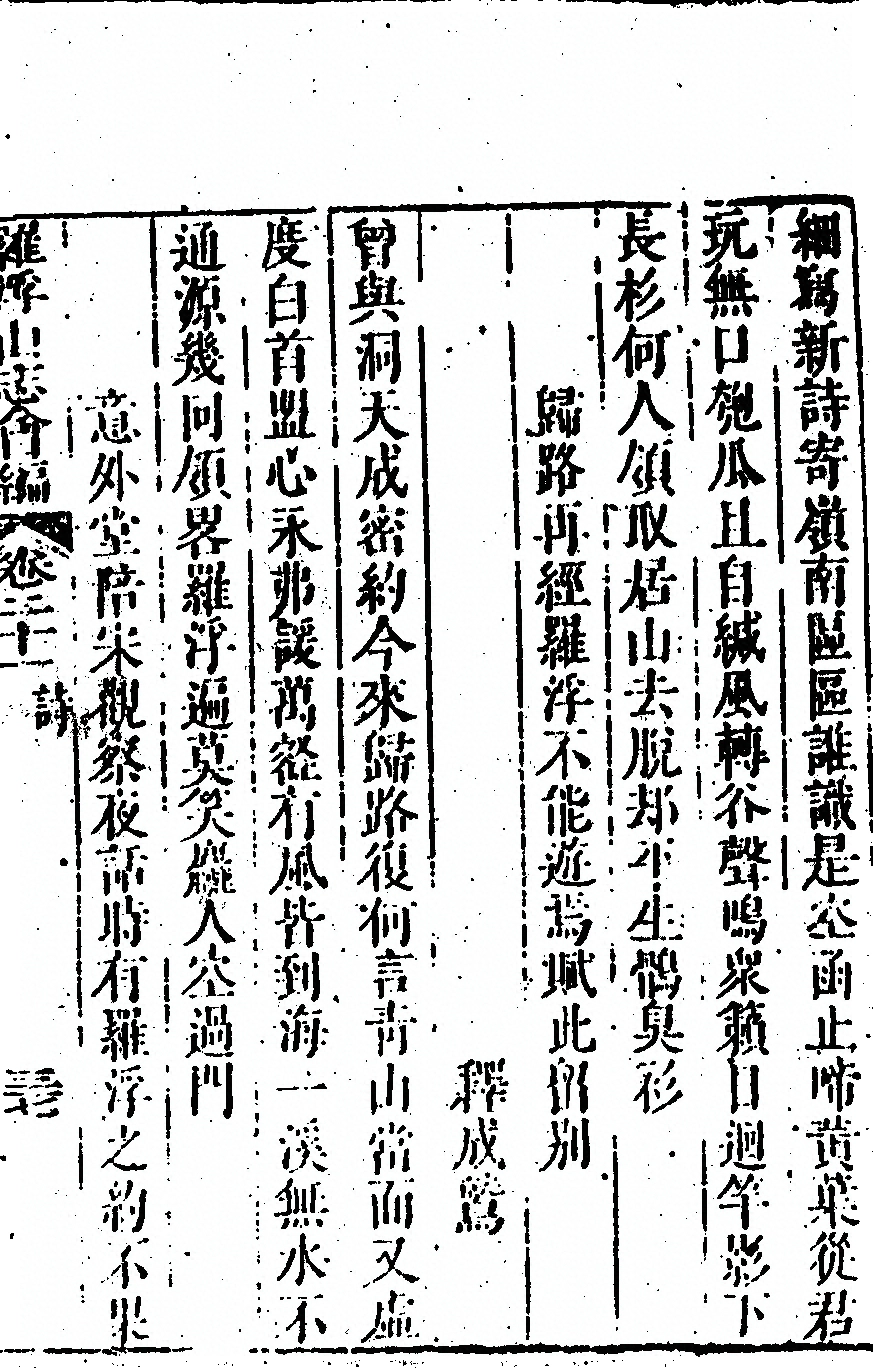 細寫新詩寄嶺南區區誰識是空函止啼黃葉從君
玩無口匏瓜且自緘風轉谷聲鳴衆籟日迴竿影下
長杉何人領取居山去脫却平生鶻臭衫
歸路再經羅浮不能遊焉賦此留別
釋成鷲
曾與洞天成密約今來歸路復何言青山當面又虛
度白首盟心永弗諼萬壑有風皆到海一溪無水不
通源幾回領畧羅浮遍莫笑麤人空過門
意外堂陪宋觀察夜話時有羅浮之約不果
羅浮山志會編
卷二十二
詩